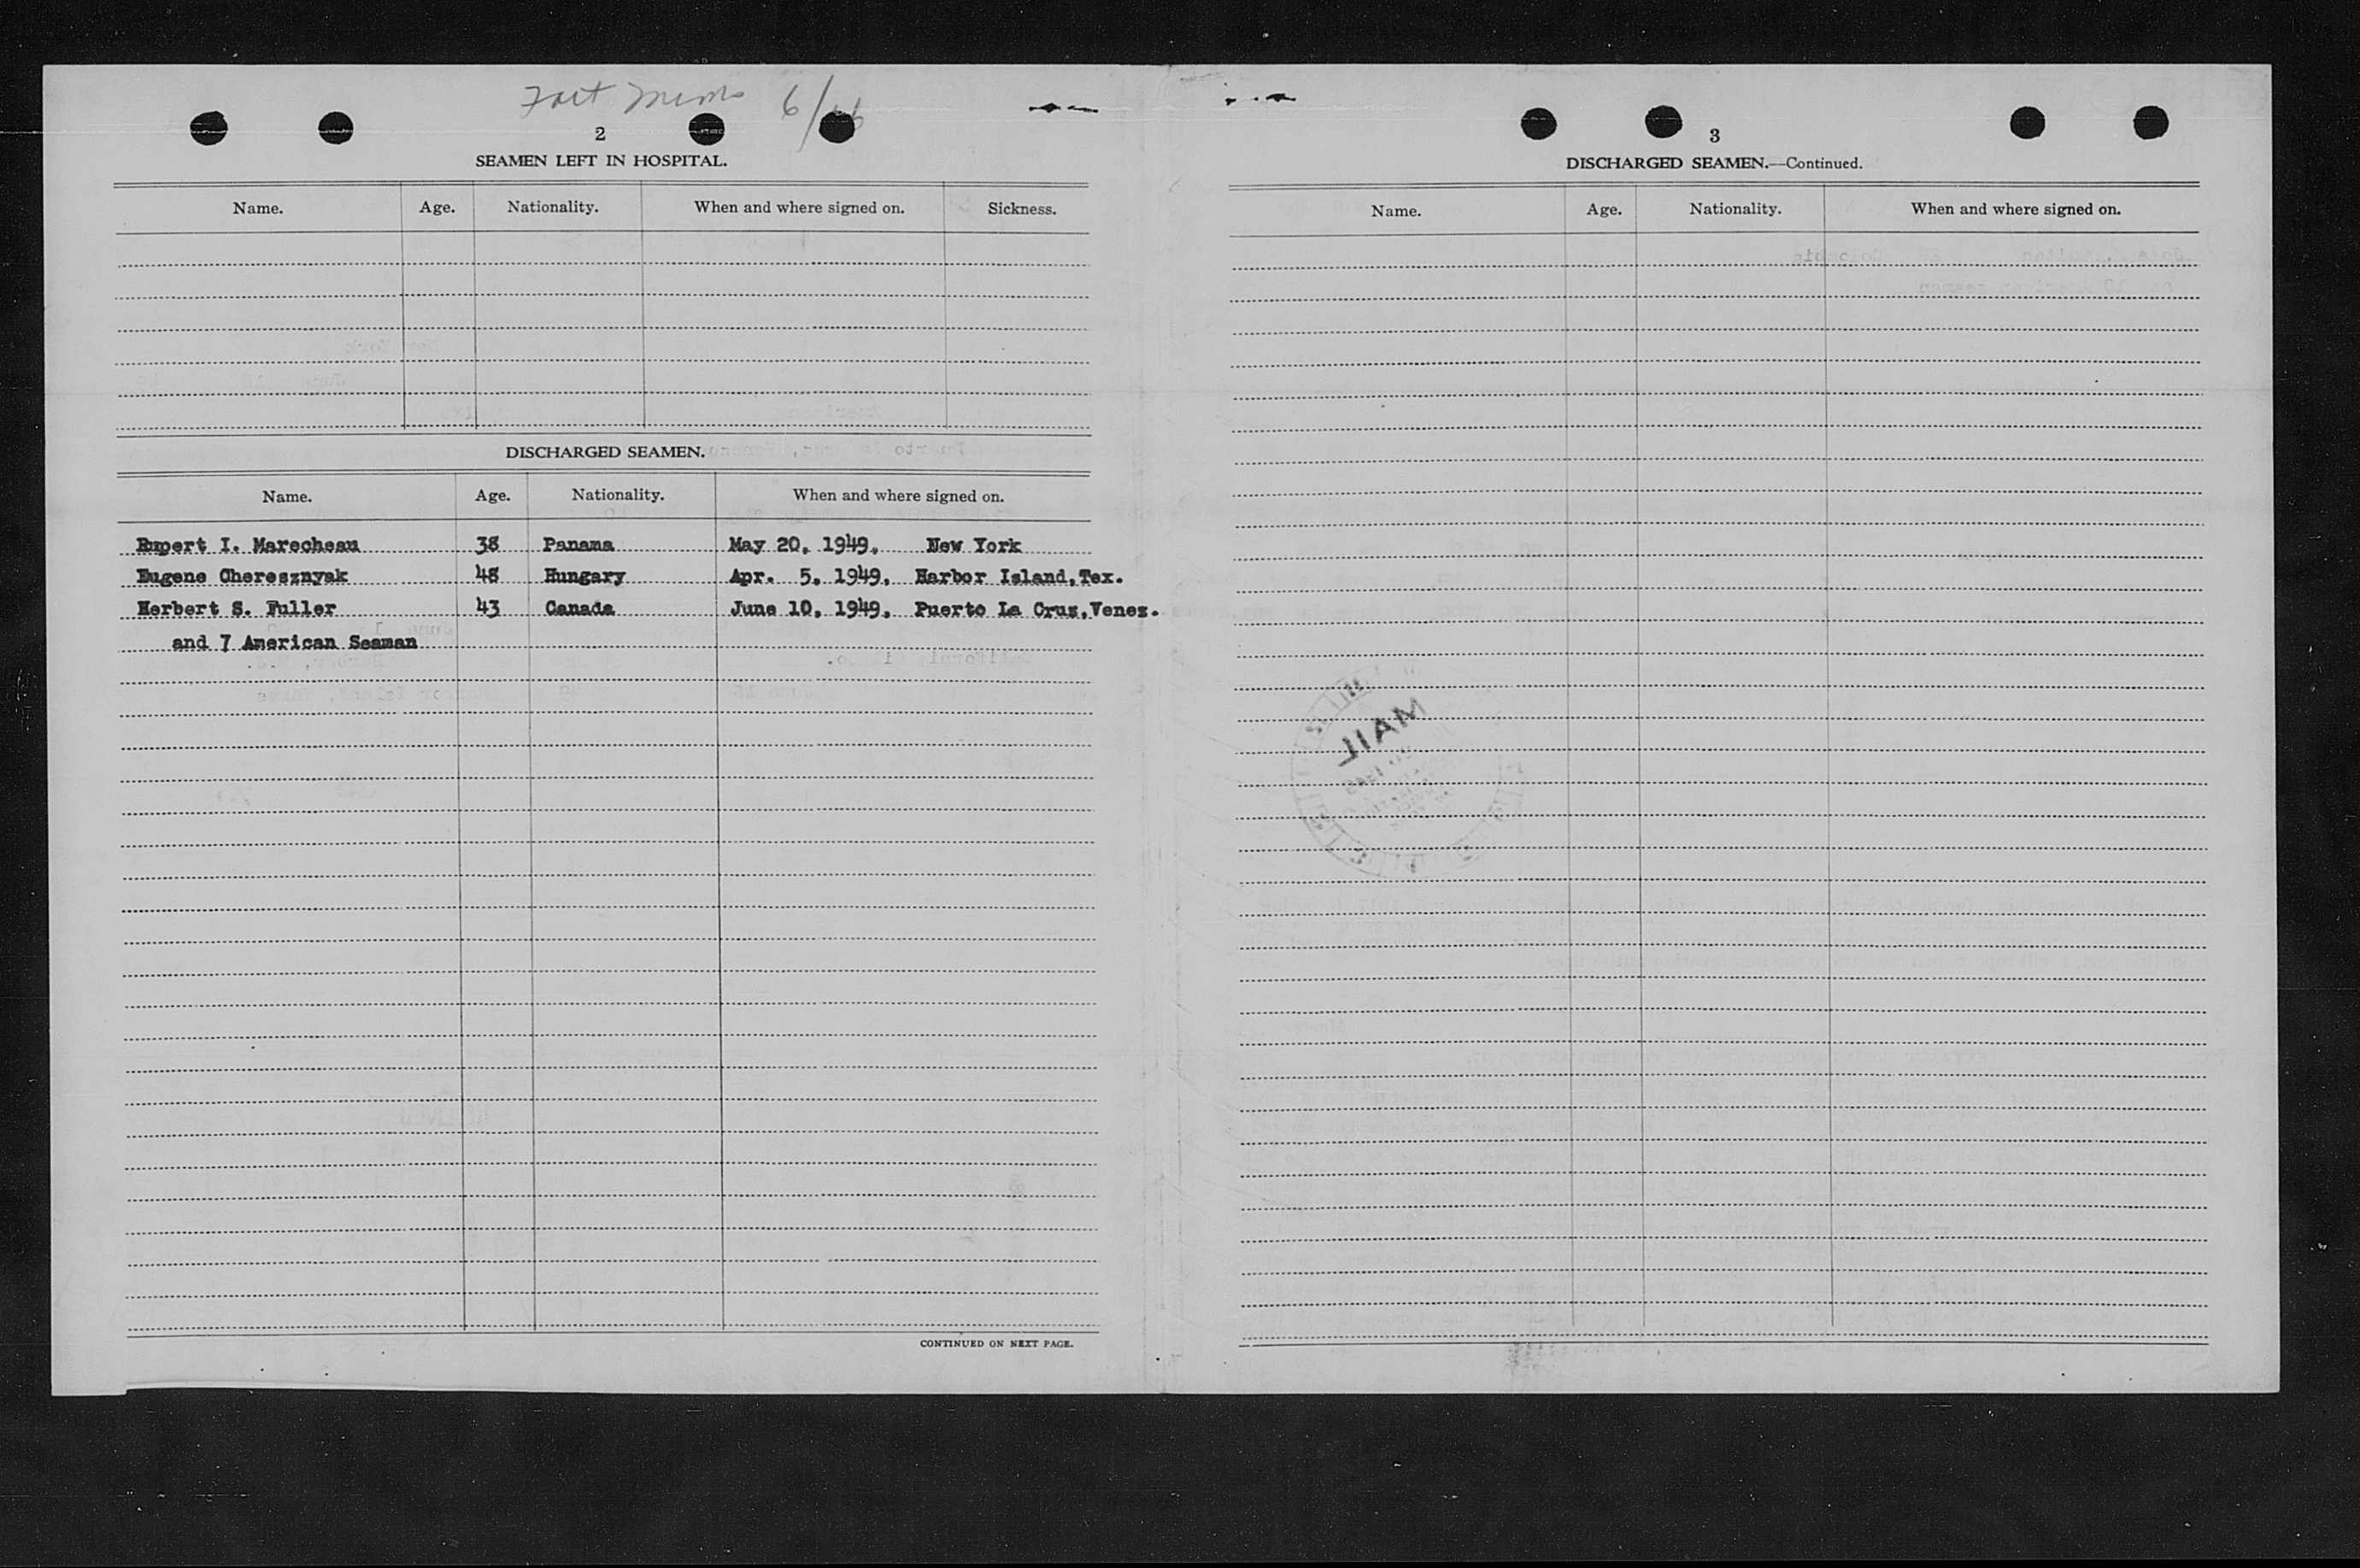 Fort Mims 6/
2
SEAMEN LEFT IN HOSPITAL.
Name. Age. Nationality. When and where signed on. Sickness.
DISCHARGED SEAMEN.
Name. Age. Nationality. When and where signed on.
Rupert I. Marecheau 38 Panama May 20, 1949, New York
Eugene Cheresznyak 48 Hungary Apr. 5, 1949, Harbor Island,Tex.
Herbert S. Fuller 43 Canada June 10, 1949, Puerto La Cruz,Venez.
and 7 American Seaman
CONTINUED ON NEXT PAGE.
3
DISCHARGED SEAMEN.—Continued.
Name. Age. Nationality. When and where signed on.
MAIL